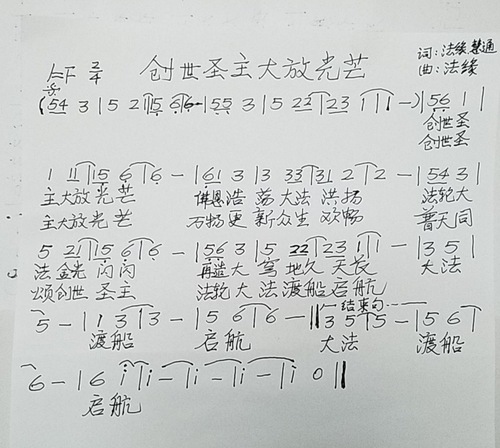 1=F 2/4 创世圣主大放光芒 词:法缘慧通
曲:法缘
(54 3|5 2|15 6|6-|55 3|5 22|23 1|1-)|56 1|
创世圣
创世圣
1 11|15 6|6-|61 3|3 33|31 2|2-|54 3|
主大放光芒 佛恩浩荡大法洪扬 法轮大
主大放光芒 万物更新众生欢畅 普天同
5 21|15 6|6-|56 3|5 22|23 1|1-|3 5|
法金光闪闪 再造大穹地久天长 大法
颂创世圣主 法轮大法渡船启航
结束句
5-|1 3|3-|5 6|6-‖3 5|5-|5 6|
渡船 启航 大法 渡船
6-|6 i|i-|i-|i-|i 0‖
启航